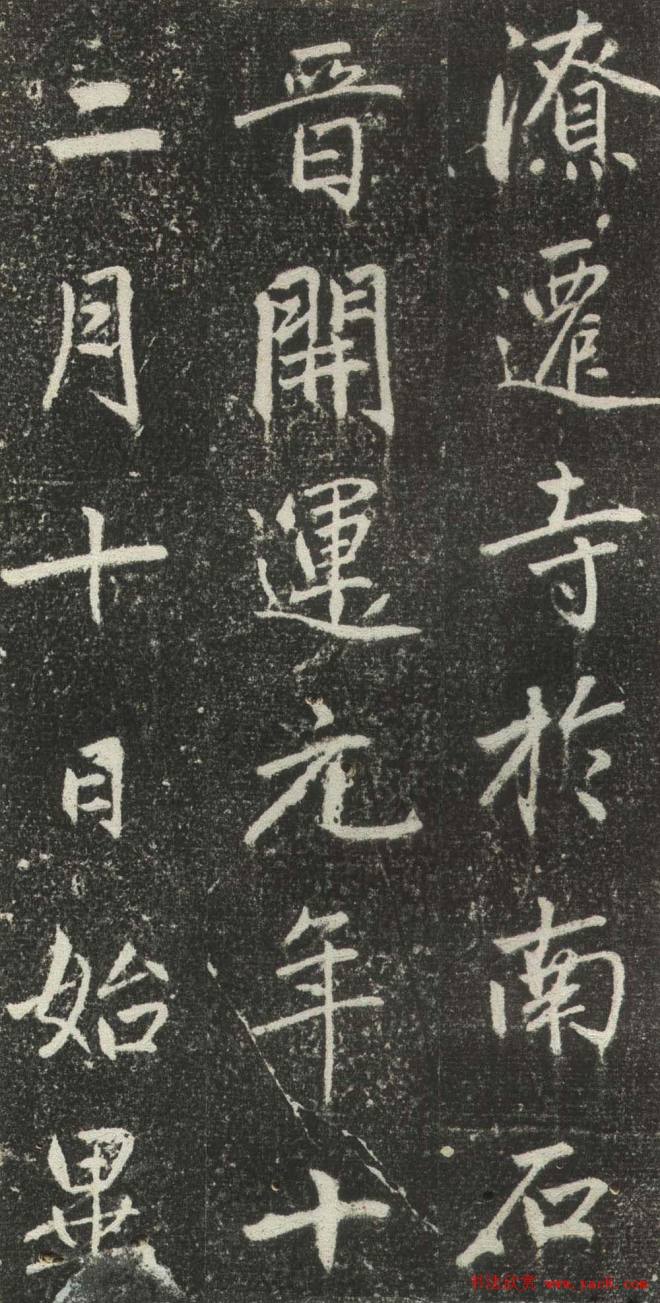 潦遷寺於南石
晉開運元年十
二月十日始畢
书法欣赏 www.yac8.com